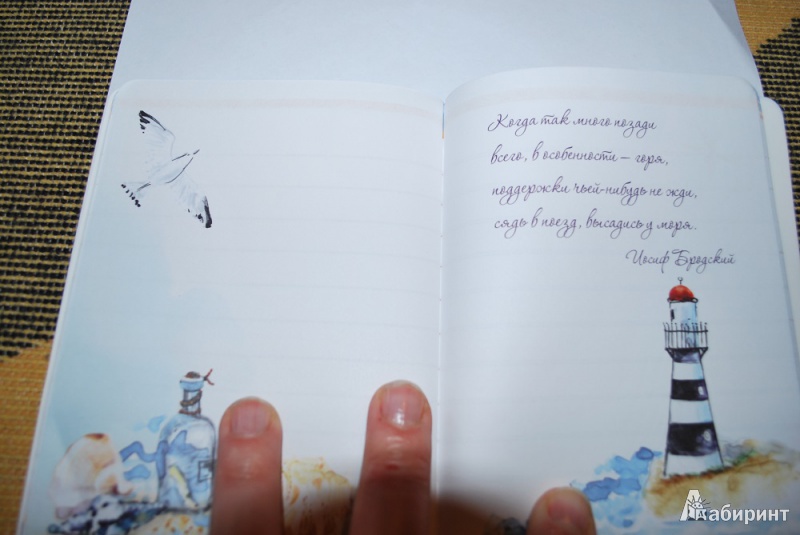 Когда так много позади
всего, в особенности – горя,
поддержки чьей-нибудь не жди,
сядь в поезд, высадись у моря.
Иосиф Бродский
Лабиринт